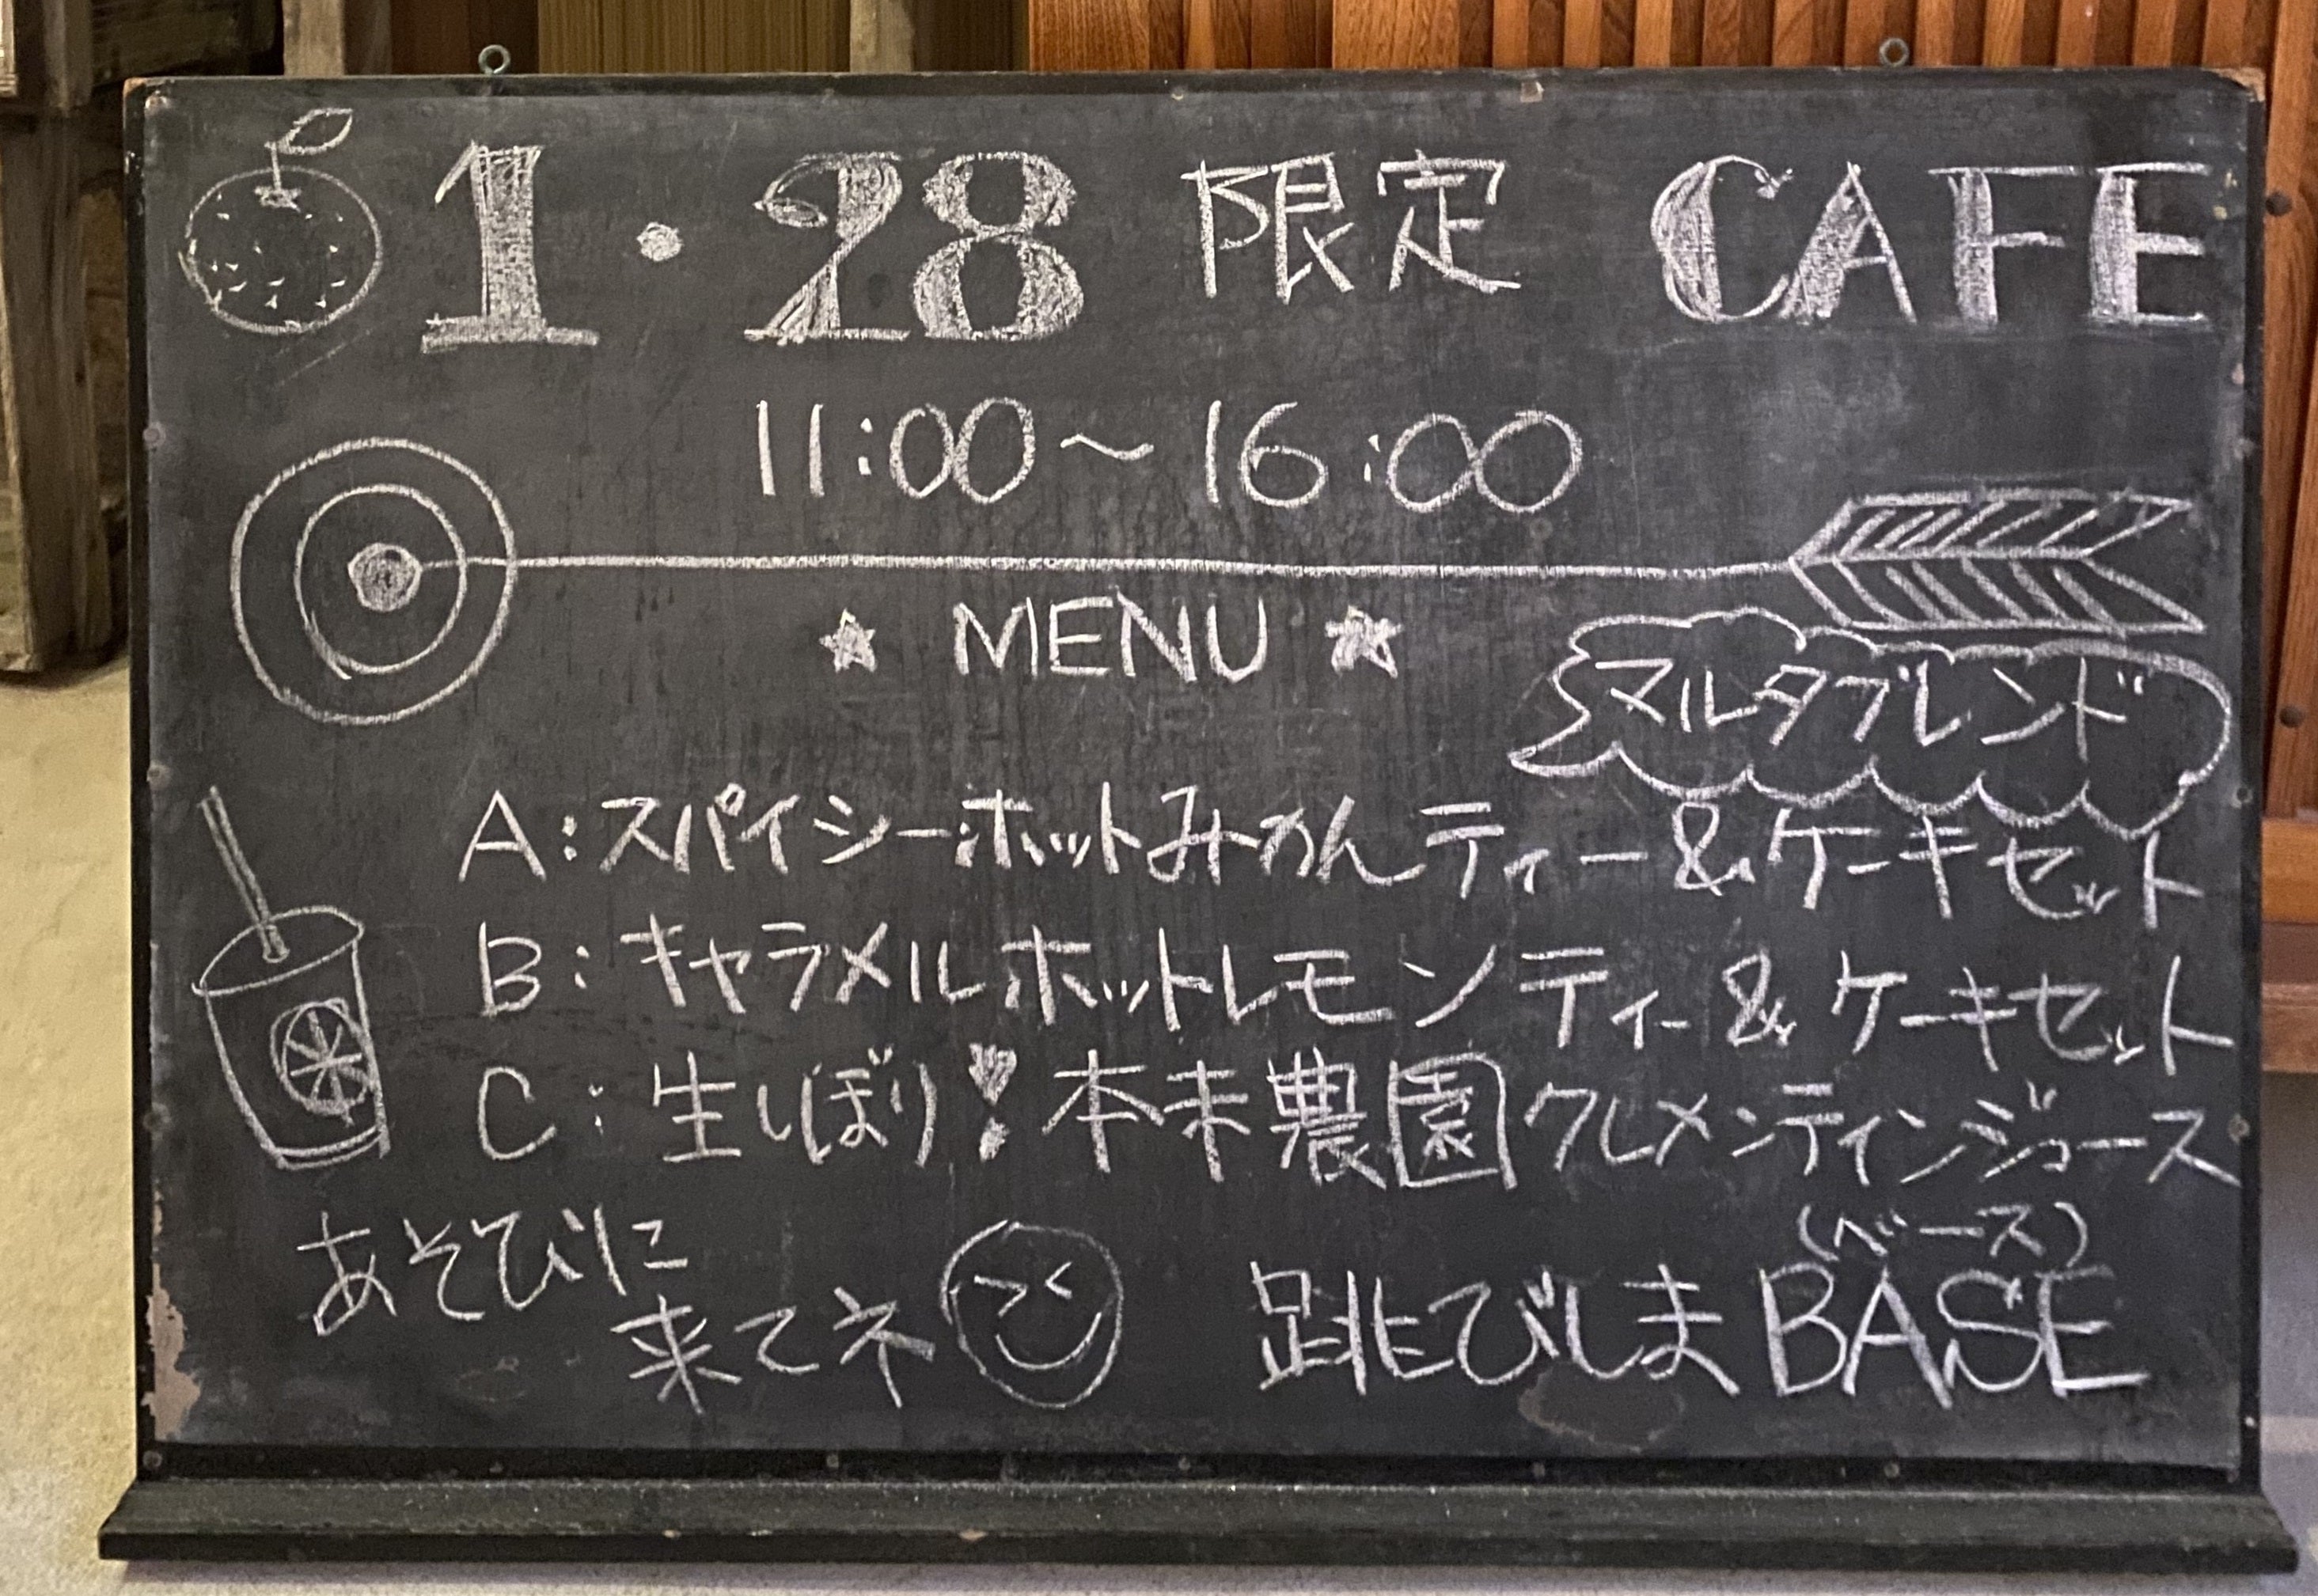 1・28 限定 CAFE
11:00～16:00
★ MENU ★
マルタブレンド
A:スパイシーホットみかんティー&ケーキセット
B:キャラメルホットレモンティー&ケーキセット
C:生しぼり!本末農園クレメンティンジュース
あそびに
来てネ
(ベース)
跳びしまBASE